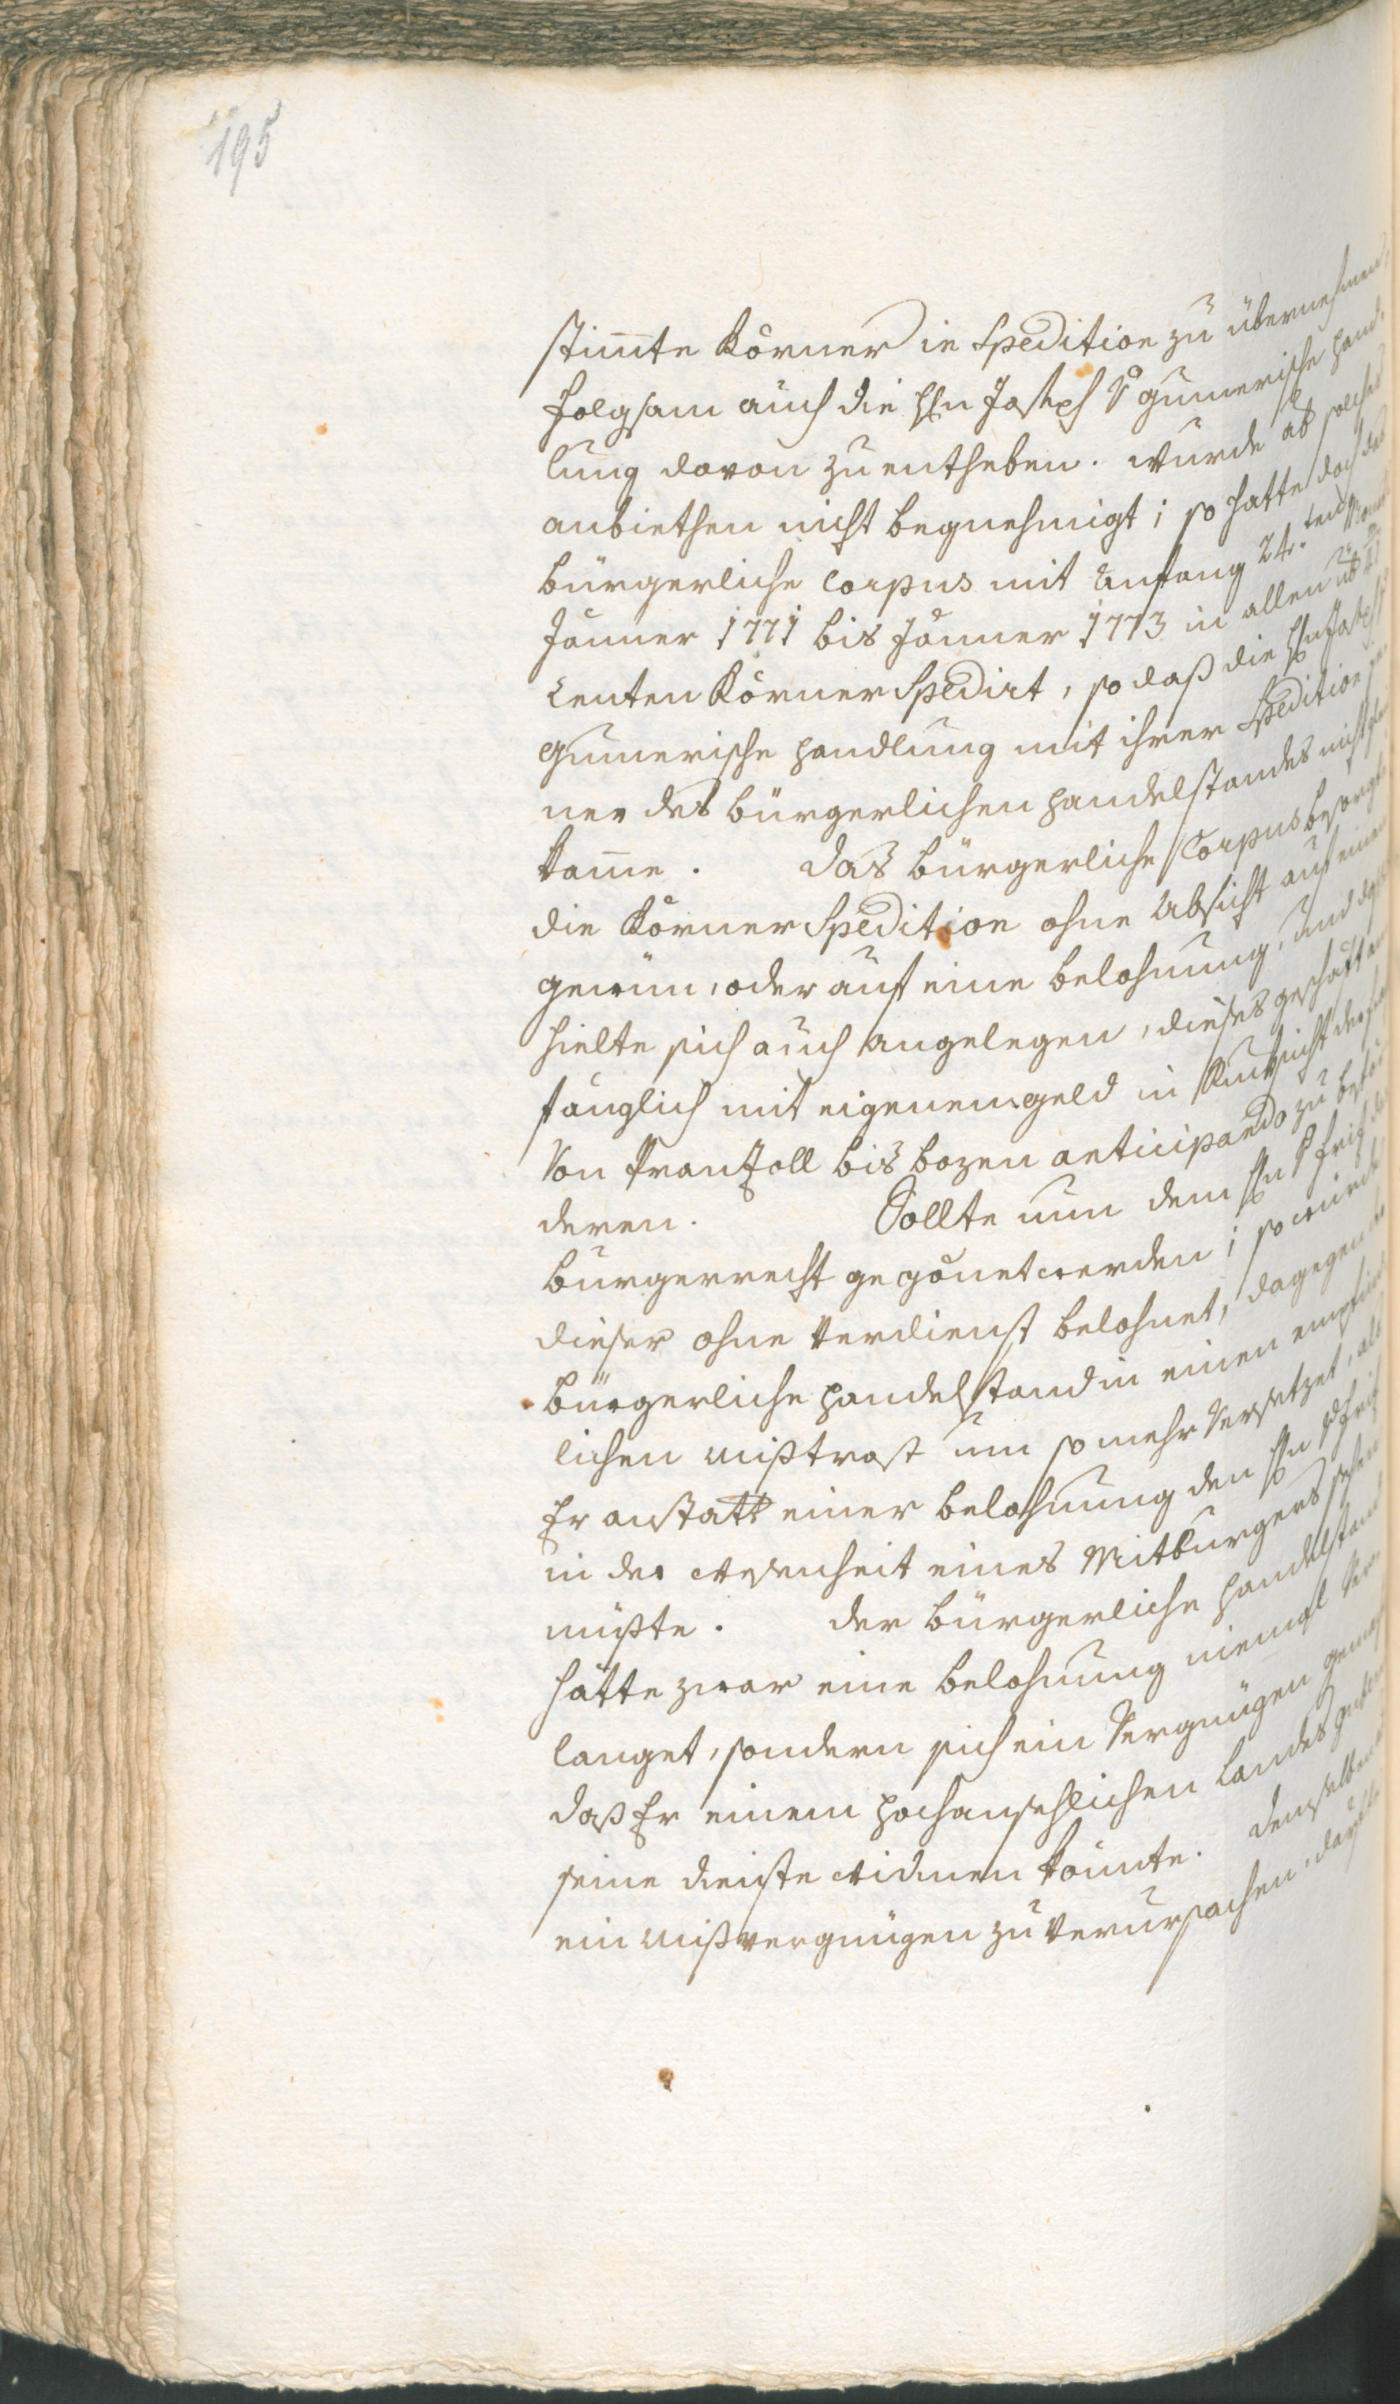 195
stim̄te Körner in Spedition zu übernehmen,
folgsam auch die Hn Joseph v Gumerische Hand¬
lung davon zu entheben. Wurde ab solches
anbiethen nicht begnehmigt; so hatte doch das
bürgerliche Corpus mit Anfang 24.ten
Jänner 1771 bis Jänner 1773 in allen
Centen Körner Spedirt, so daß die Hn Joseph v
Gumerische Handlung mit ihrer Spedition
ner des bürgerlichen Handelstandes nicht
kam̄e. Das bürgerliche Corpus besorgte
die Körner Spedition ohne Absicht auf einen
gewinn, oder auf eine belohnung, und
hielte sich auch angelegen, dieses geschäft an¬
fänglich mit eigenem geld in Rucksicht der
Von Branzoll bis bozen anticipando zu beför¬
deren. Sollte nun dem Hn
burgerrecht gegönet werden; so wurde
dieser ohne Verdienst belohnet, dagegen der
bürgerliche Handelstand in einen empfind¬
lichen Mißtrost um so mehr Versetzet, als
Er anstatt einer belohnung den Hn
in der Wesenheit eines Mitburgers sehen
müßte. Der bürgerliche Handelstand
hätte zwar eine belohnung niemal Ver¬
langet, sondern sich ein Vergnügen gemacht
daß Er einem Hochansehlichen Landes
seine dienste Widmen könnte. Demselben
ein Mißvergnügen zu Verursachen,